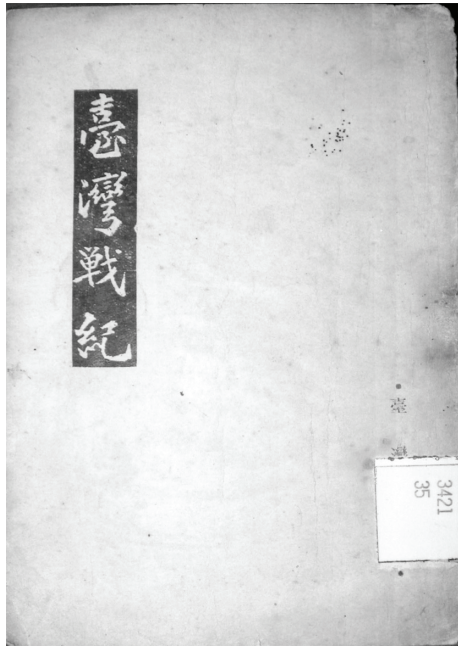 臺灣戦紀
臺
3421
35